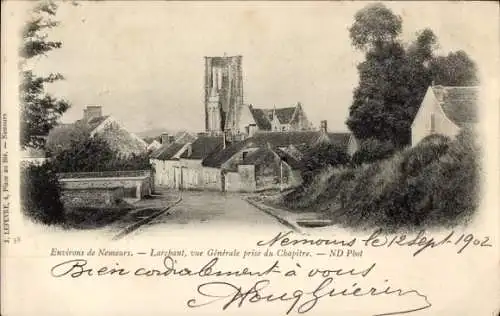 J. LEFEVRE, 4, Place au Blé. — Nemours
58
Environs de Nemours. — Larchant, vue Générale prise du Chapitre. — ND Phot
Nemours, le 12 Sept 1902
Bien cordialement à vous